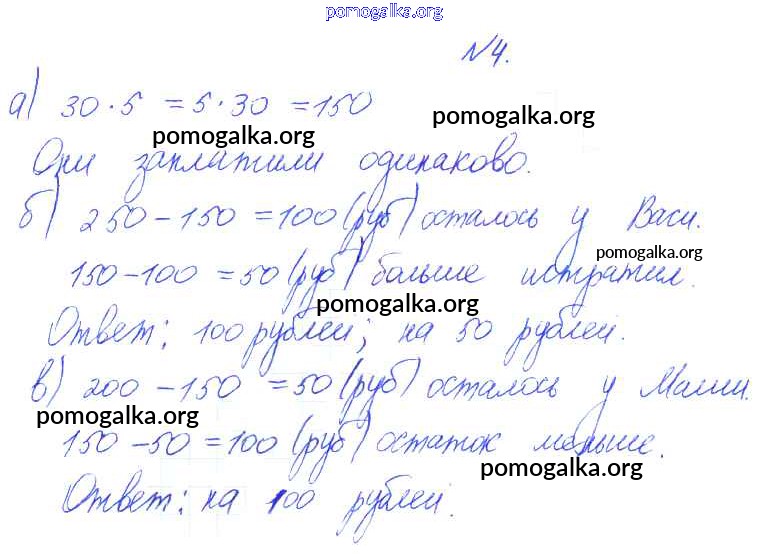 pomogalka.org
№4.
а) 30·5 = 5·30 = 150
pomogalka.org
pomogalka.org
Они заплатили одинаково.
б) 250 - 150 = 100 (руб) осталось у Васи.
pomogalka.org
150 - 100 = 50 (руб) больше истратил.
pomogalka.org
Ответ: 100 рублей; на 50 рублей.
в) 200 - 150 = 50 (руб) осталось у Маши.
pomogalka.org
150 - 50 = 100 (руб) остаток меньше.
pomogalka.org
Ответ: на 100 рублей.